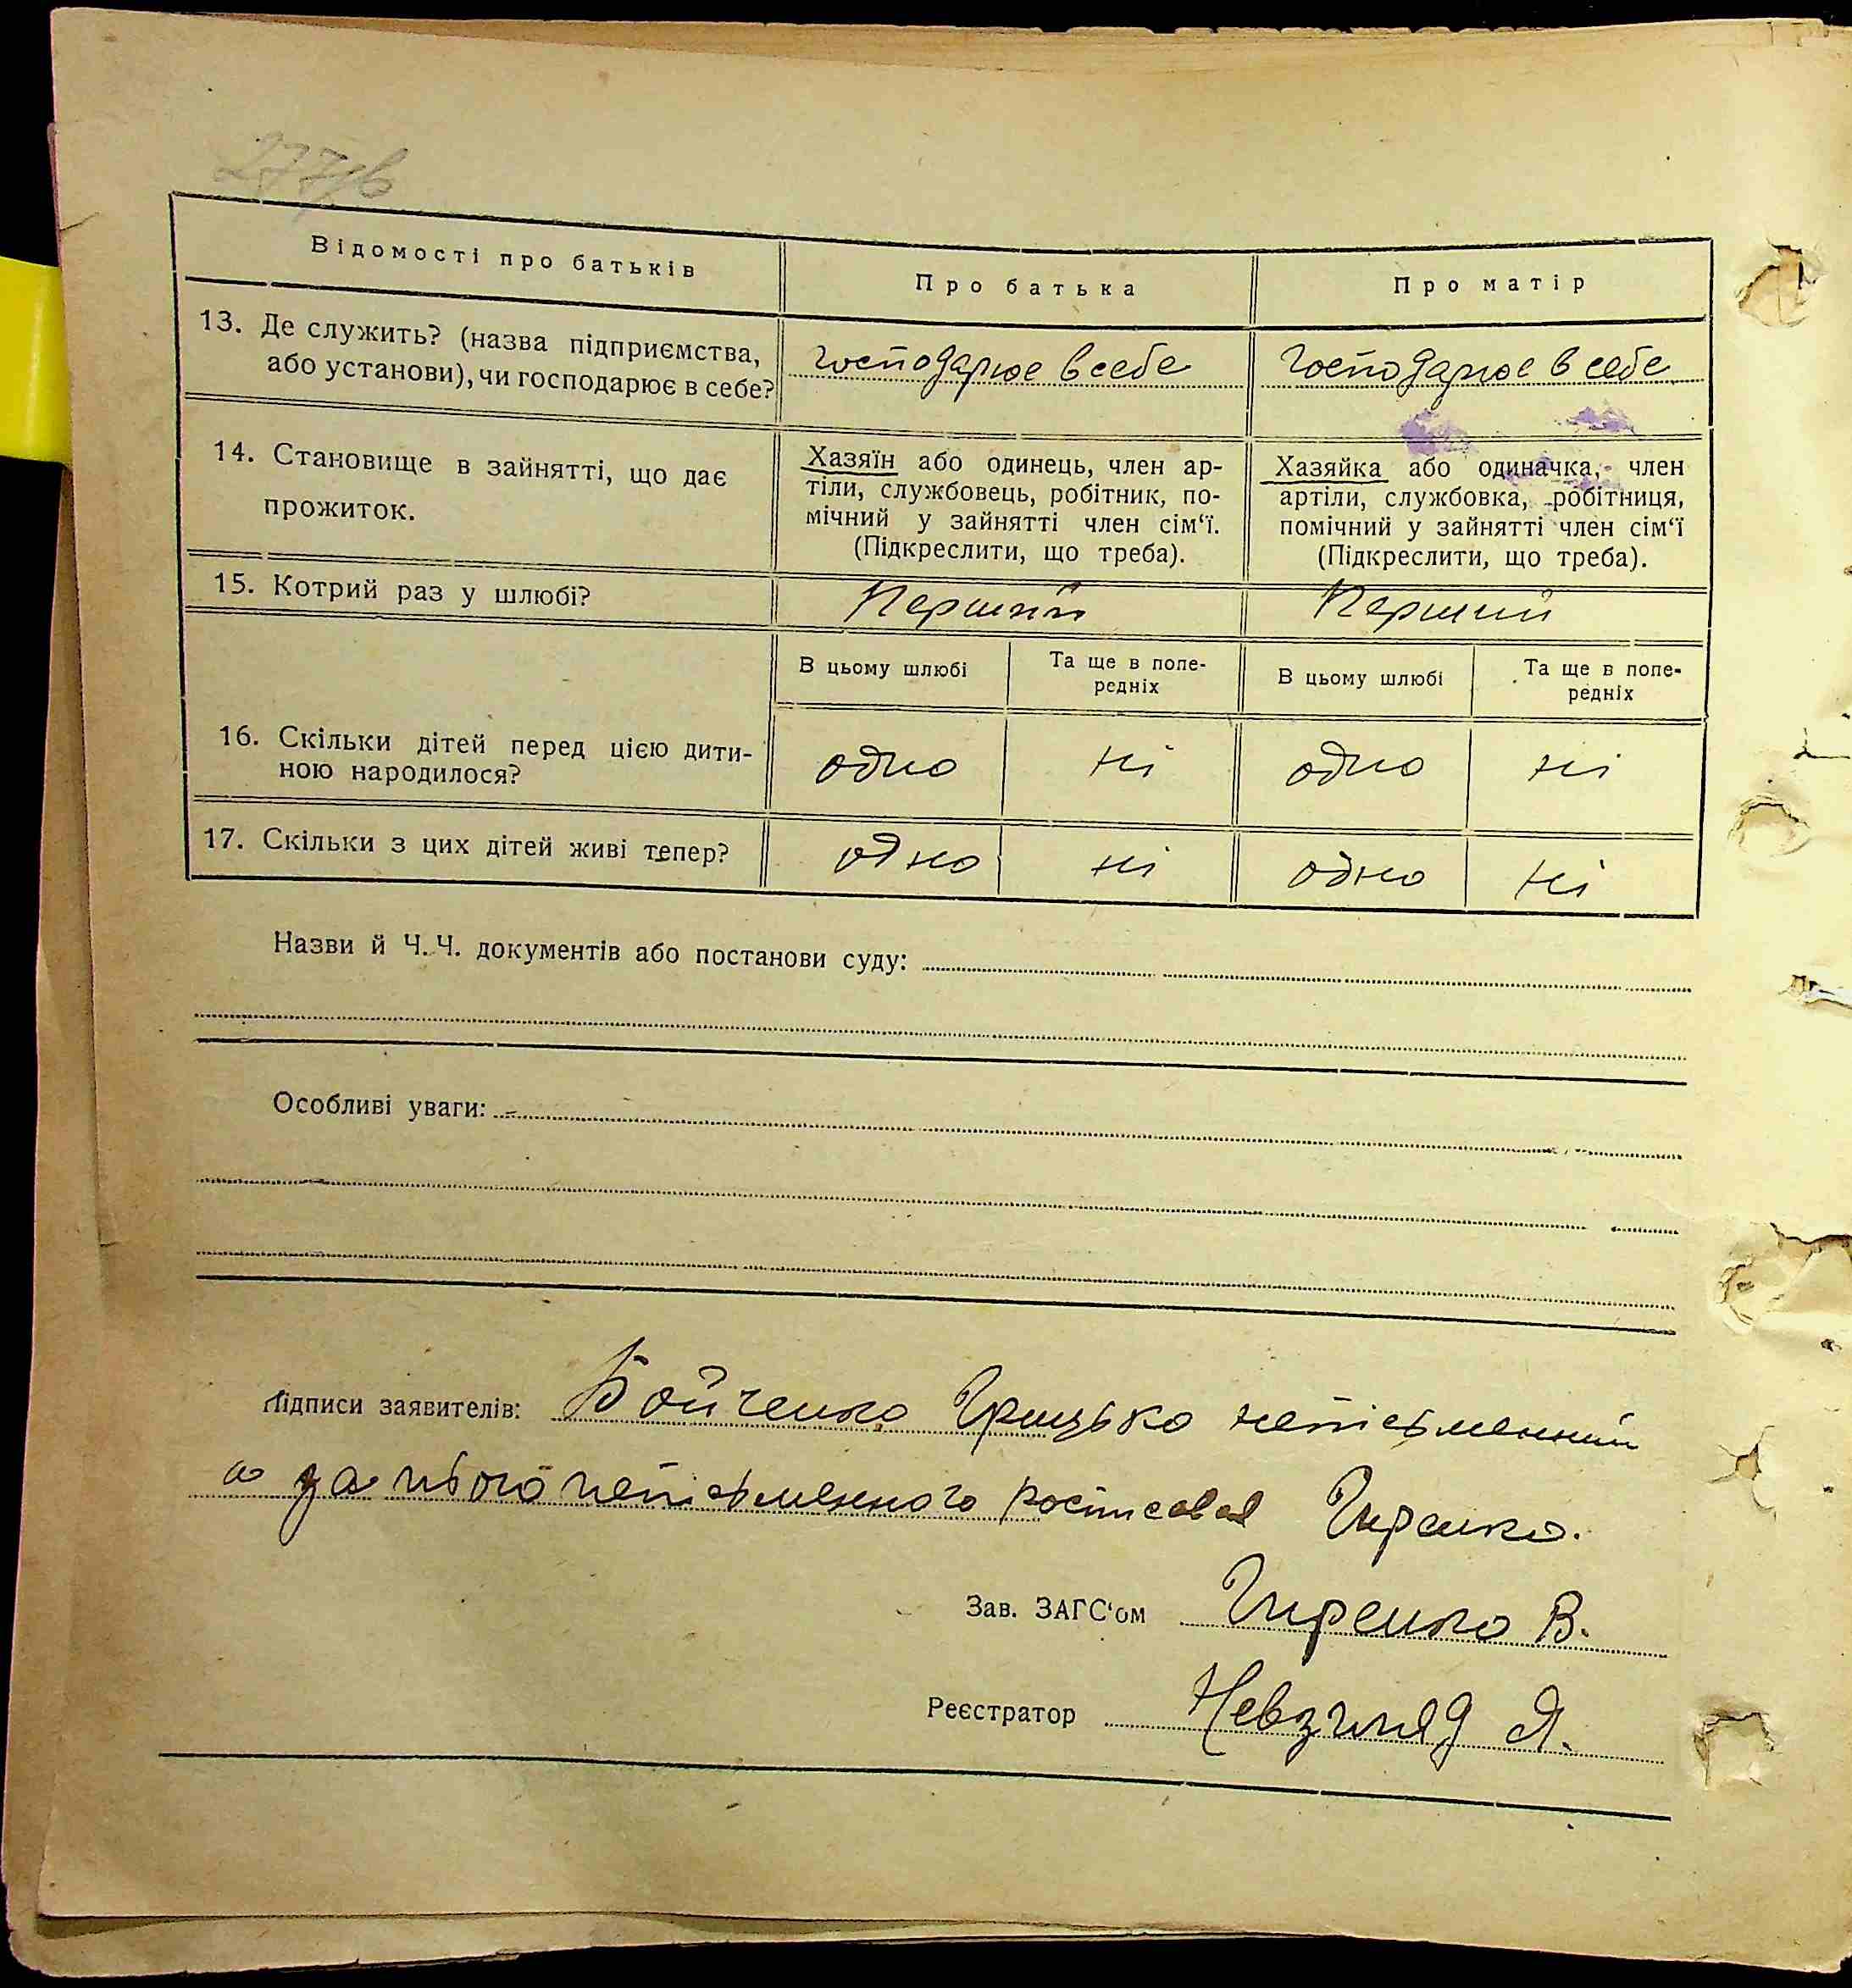 Відомості про батьків
Про батька
Про матір
13. Де служить? (назва підприємства,
або установи), чи господарює в себе?
господарює в себе
господарює в себе
14. Становище в зайнятті, що дає
прожиток.
Хазяїн або одинець, член ар-
тіли, службовець, робітник, по-
мічний у зайнятті член сім‘ї.
(Підкреслити, що треба).
Хазяйка або одиначка, член
артіли, службовка, робітниця,
помічний у зайнятті член сім‘ї
(Підкреслити, що треба).
15. Котрий раз у шлюбі?
Перший
Перший
В цьому шлюбі
Та ще в попе-
редніх
В цьому шлюбі
Та ще в попе-
редніх
16. Скільки дітей перед цією дити-
ною народилося?
одно
ні
одно
ні
17. Скільки з цих дітей живі тепер?
одно
ні
одно
ні
Назви й Ч.Ч. документів або постанови суду:
Особливі уваги:
Підписи заявителів: Бойченко Грицько непісьменний
а за нього непісьменного росписався Гиренко.
Зав. ЗАГС‘ом Гиренко В.
Реєстратор Невзгляд Я.